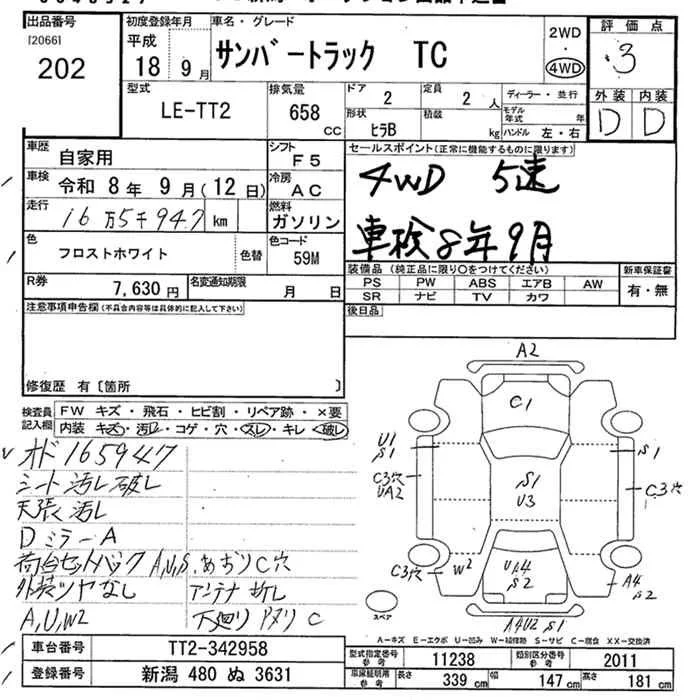 出品番号
[2066]
202
初度登録年月
平成
18 9月
車名・グレード
サンバートラック TC
2WD
・
4WD
評価点
3
外装 内装
D D
型式
LE-TT2
排気量
658
CC
ドア
2
定員
2人
形状
ヒラB
積載
kg
ディーラー・並行
モデル年式 年
ハンドル 左・右
車歴
自家用
シフト
F5
車検
令和 8年 9月(12日)
冷房
AC
走行
16万5千947 km
燃料
ガソリン
色
フロストホワイト
色替
色コード
59M
R券
7,630円
名変通知期限
月 日
セールスポイント(正常に機能するものに限ります)
4WD 5速
車検8年9月
装備品 (純正品に限り○をつけてください)
PS PW ABS エアB AW
SR ナビ TV カワ
新車保証書
有・無
後日品
注意事項申告欄(不具合内容等は具体的に記入して下さい)
修復歴 有〔箇所 〕
検査員記入欄
FW キズ・飛石・ヒビ割・リペア跡・×要
内装 キズ・汚レ・コゲ・穴・スレ・キレ・破レ
オド165947
シート汚レ破レ
天張汚レ
DミラーA
荷台セットバック A,U,S, あおりC穴
外装ツヤなし アンテナ折レ
A,U,W2 下廻りサビC
A2
C1
U1
S1
S1
C3穴
UA2
C3穴
S1
U3
C3穴
W2
UA4
S2
A4
S2
スペア
A4U2 S1
A-キズ E-エクボ U-凹み W-補修跡 S-サビ C-腐食 XX-交換済
車台番号
TT2-342958
登録番号
新潟 480 ぬ 3631
型式指定番号
参考
11238
類別区分番号
参考
2011
車庫証明用
参考
長さ
339 cm
幅
147 cm
高さ
181 cm